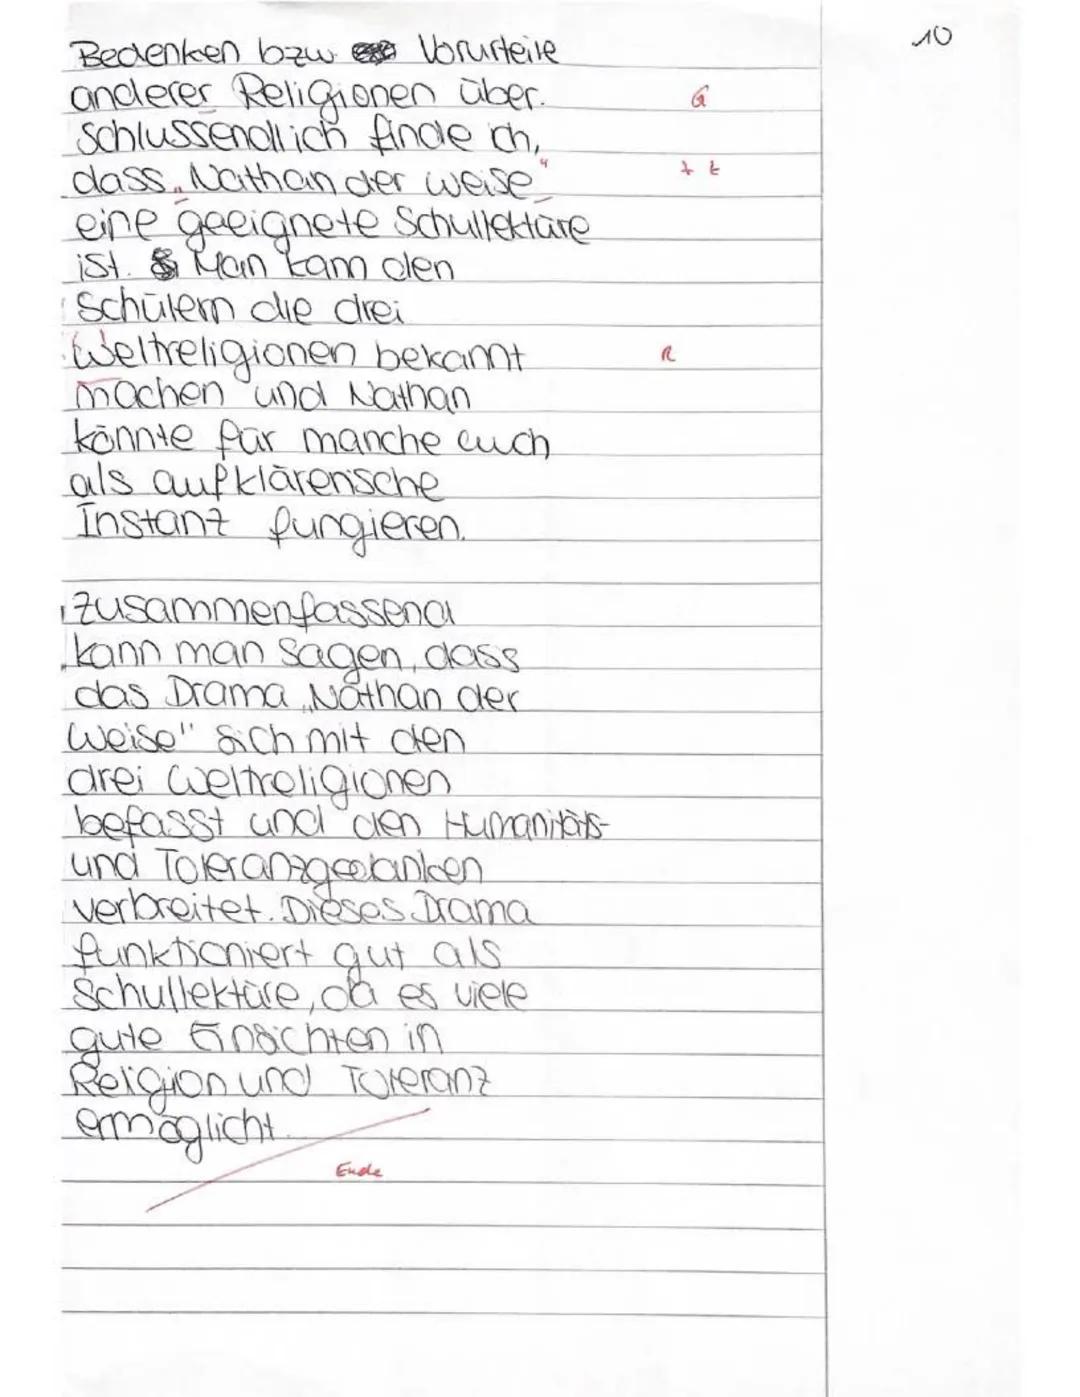 10
Bedenken bzw. Vorurteile
anderer Religionen über.
G
Schlussendlich finde ich,
dass „Nathan der weise“
z z
eine geeignete Schullektüre
ist. Man kann den
Schülern die drei
Weltreligionen bekannt
R
machen und Nathan
könnte für manche auch
als aufklärensche
Instanz fungieren.
Zusammenfassend
kann man sagen, dass
das Drama „Nathan der
Weise" sich mit den
drei Weltreligionen
befasst und den Humanitäts-
und Toleranzgedanken
verbreitet. Dieses Drama
funktioniert gut als
Schullektüre, da es viele
gute Einsichten in
Religion und Toleranz
ermöglicht.
Ende